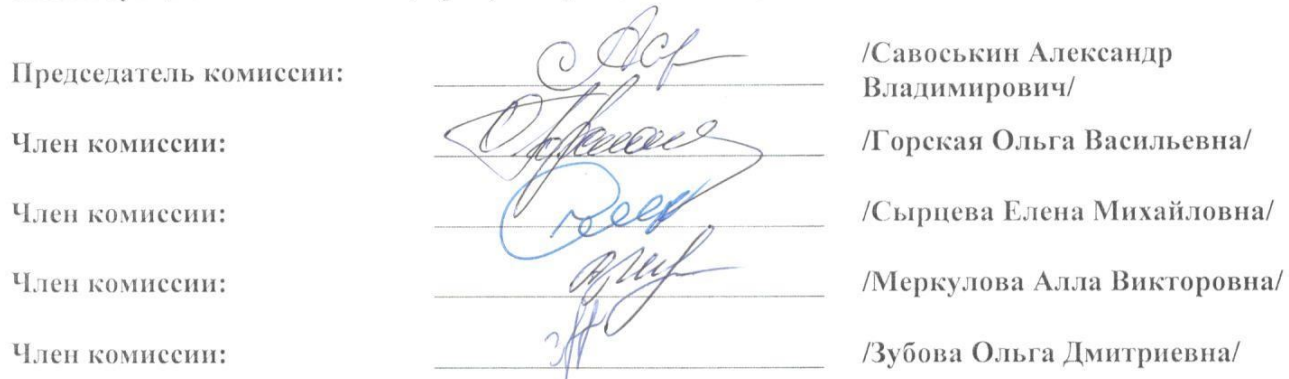 /Савоськин Александр
Председатель комиссии:
Владимирович/
Член комиссии: /Горская Ольга Васильевна/
Член комиссии: /Сырцева Елена Михайловна/
Член комиссии: /Меркулова Алла Викторовна/
Член комиссии: /Зубова Ольга Дмитриевна/